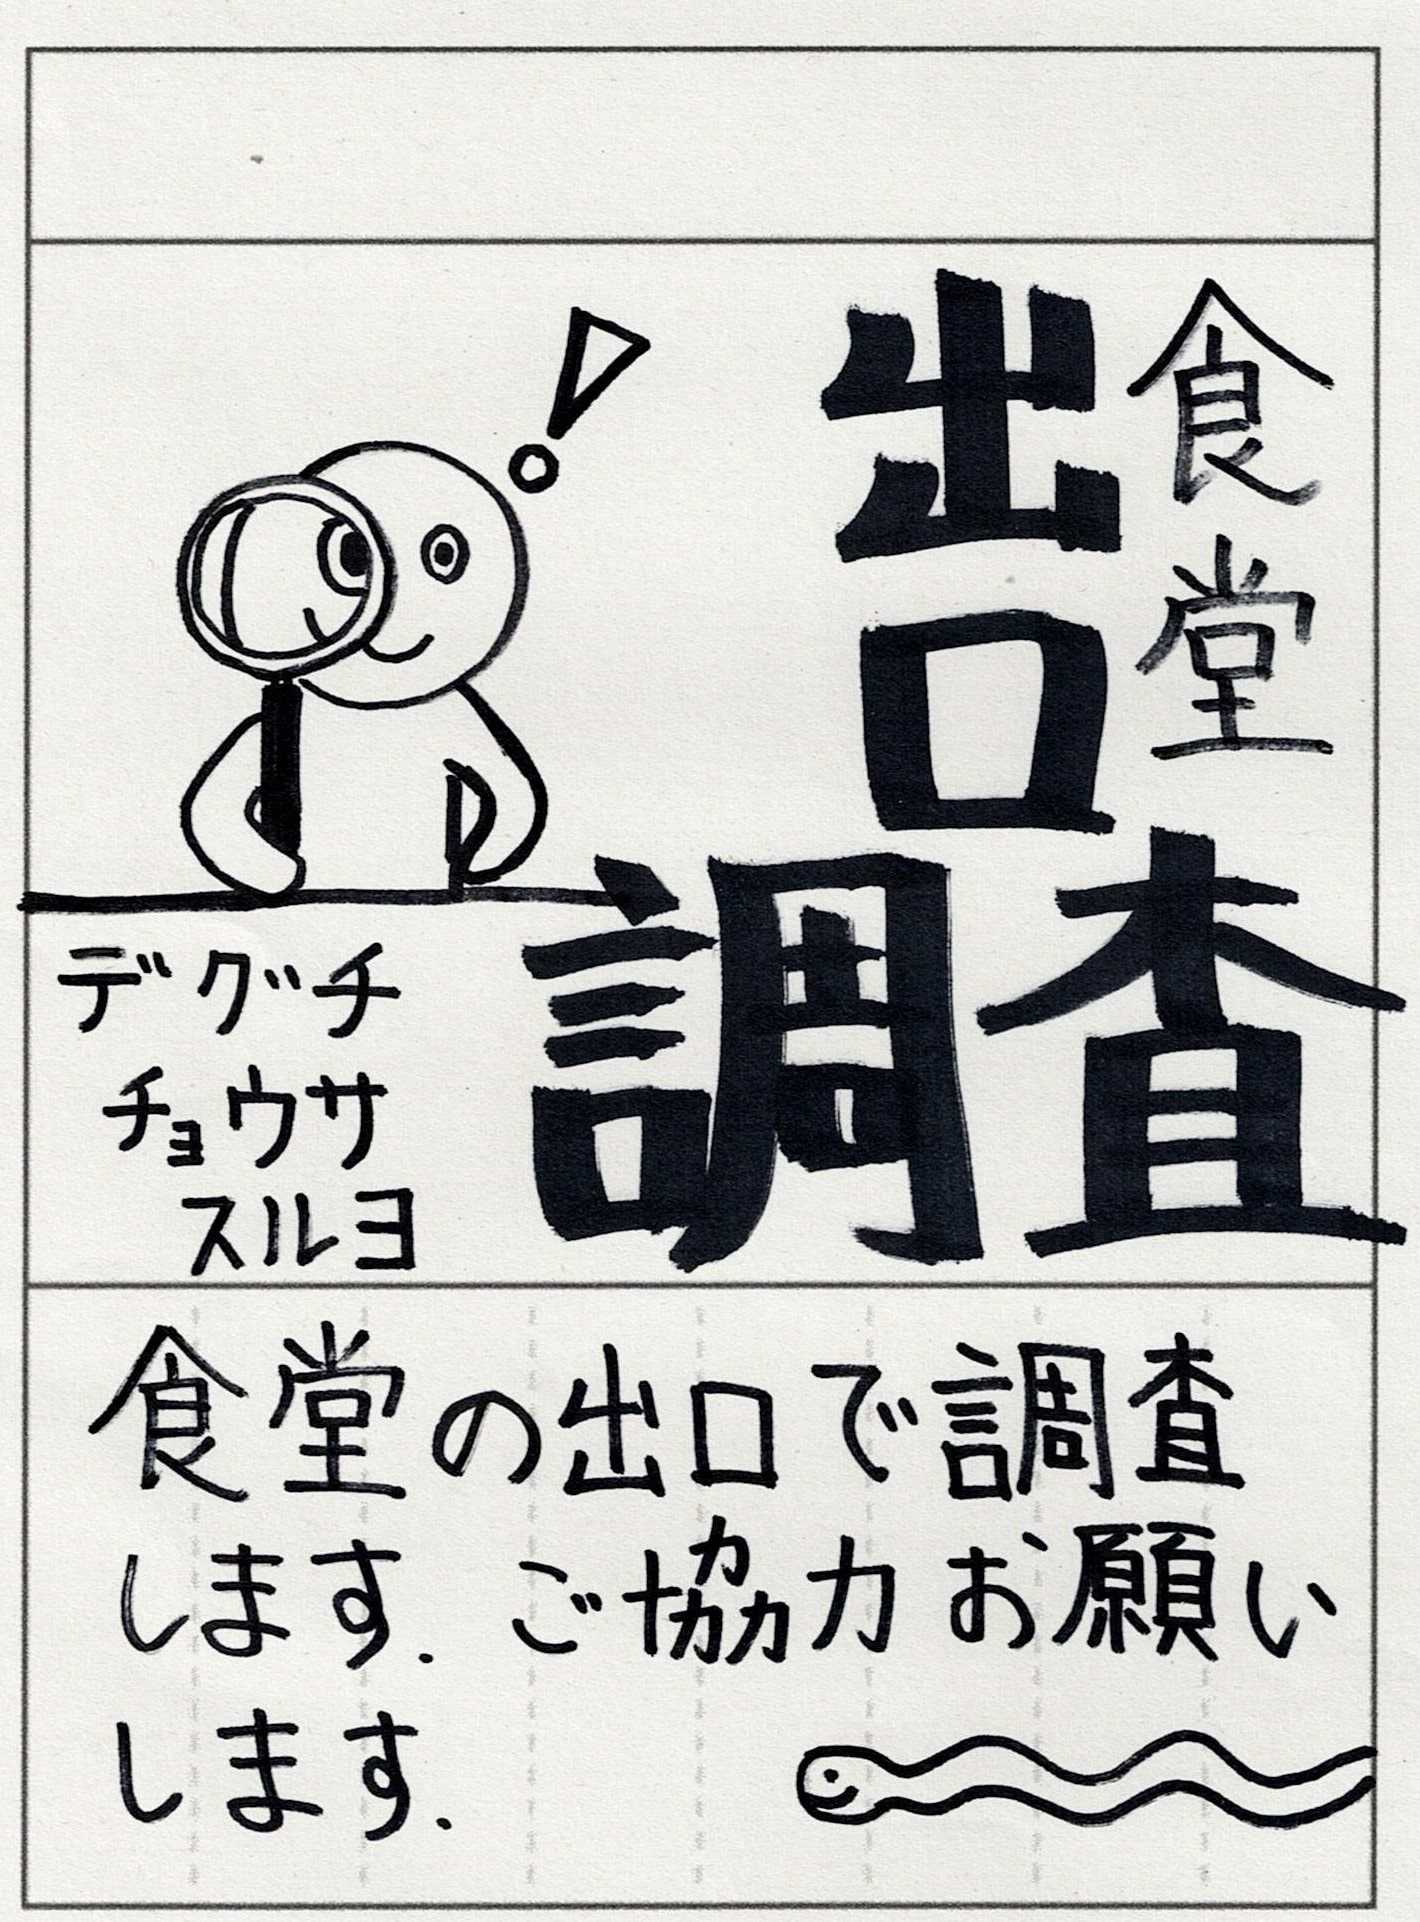 食堂
出口
調査
デグチ
チョウサ
スルヨ
食堂の出口で調査
します. ご協力お願い
します.